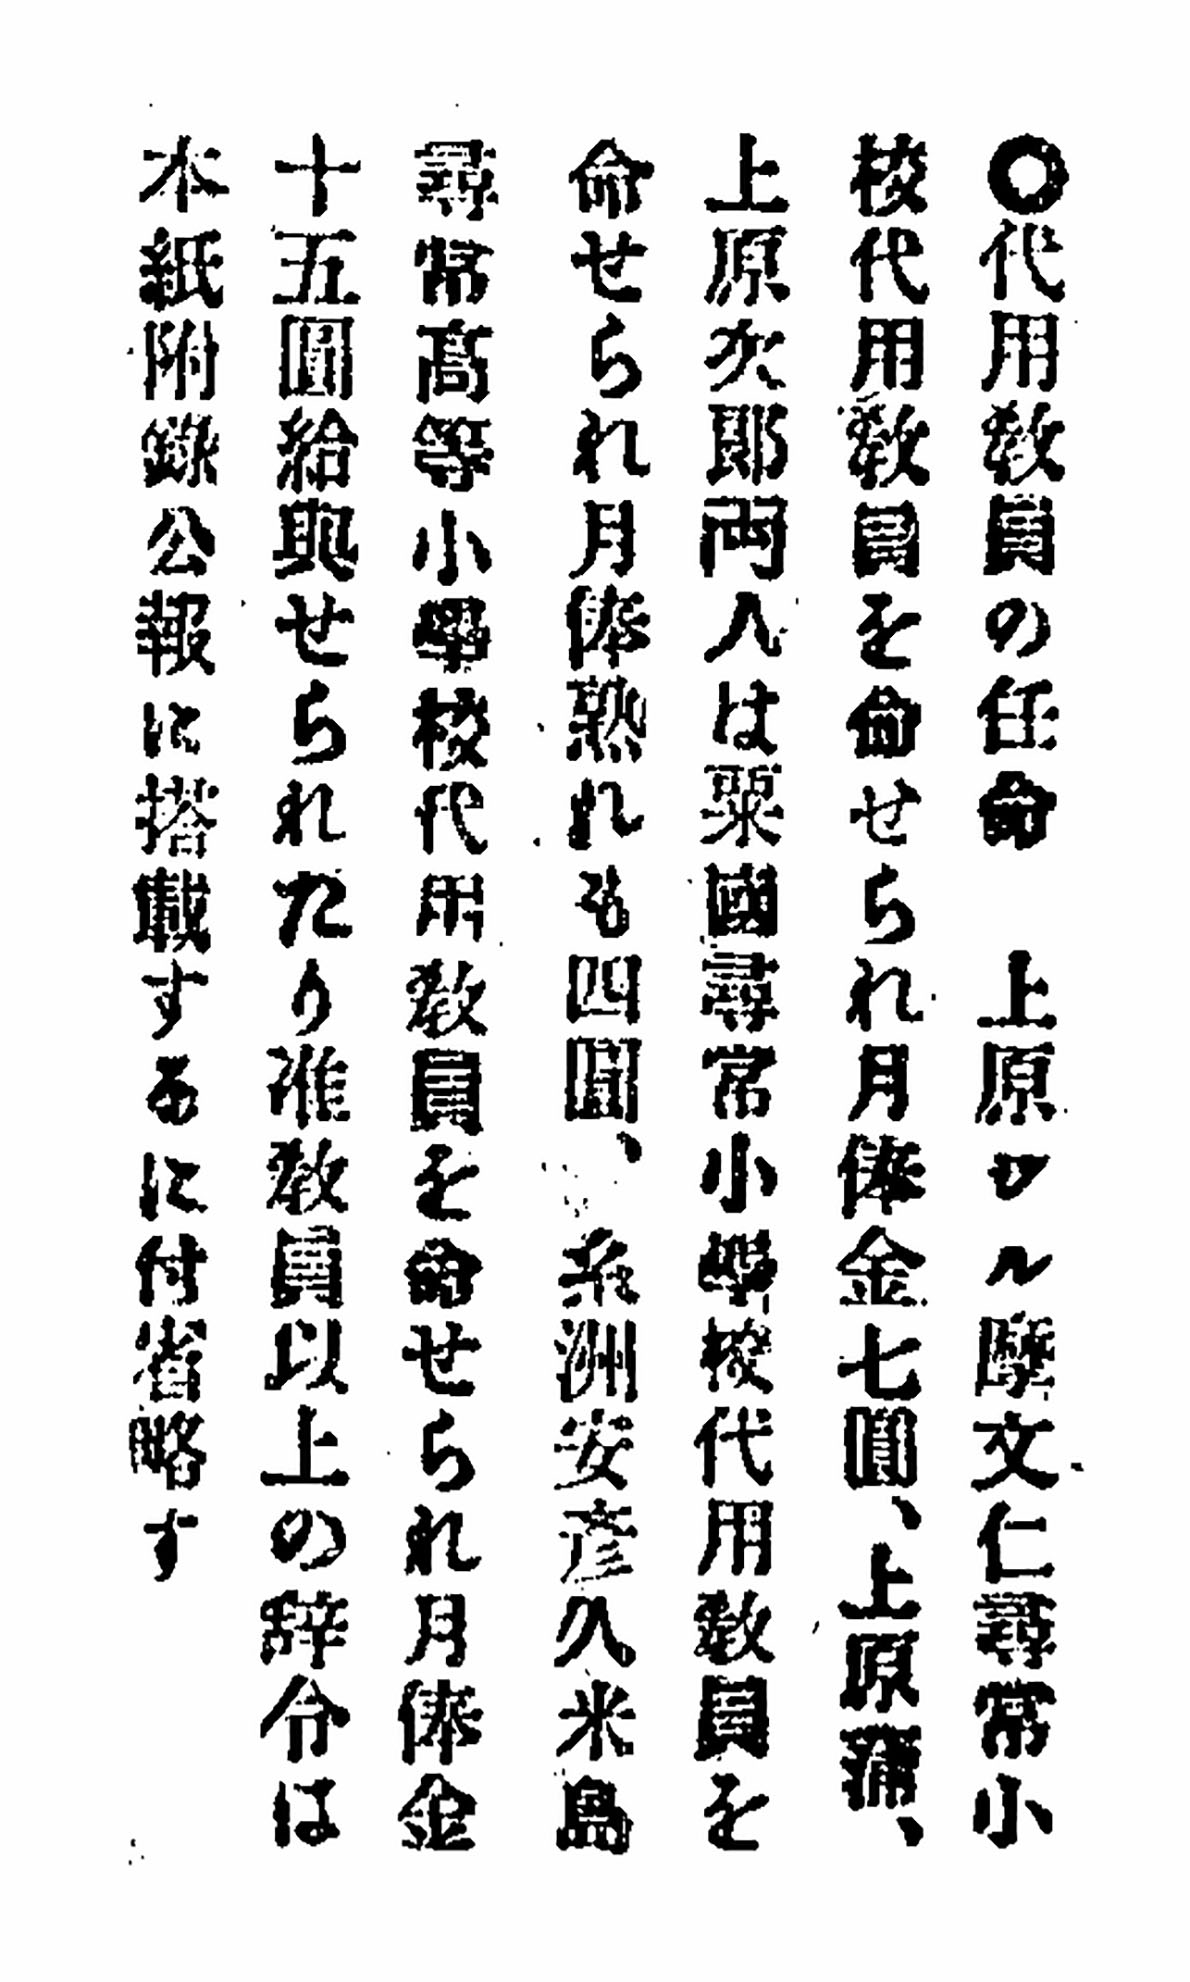 ○代用教員の任命　上原ツル摩文仁尋常小
校代用教員を命せられ月俸金七圓、上原蒲、
上原次郎両人は粟國尋常小學校代用教員を
命せられ月俸熟れも四圓、糸洲安彦久米島
尋常髙等小學校代用教員を命せられ月俸金
十五圓給與せられたり准教員以上の辞令は
本紙附錄公報に搭載するに付省略す